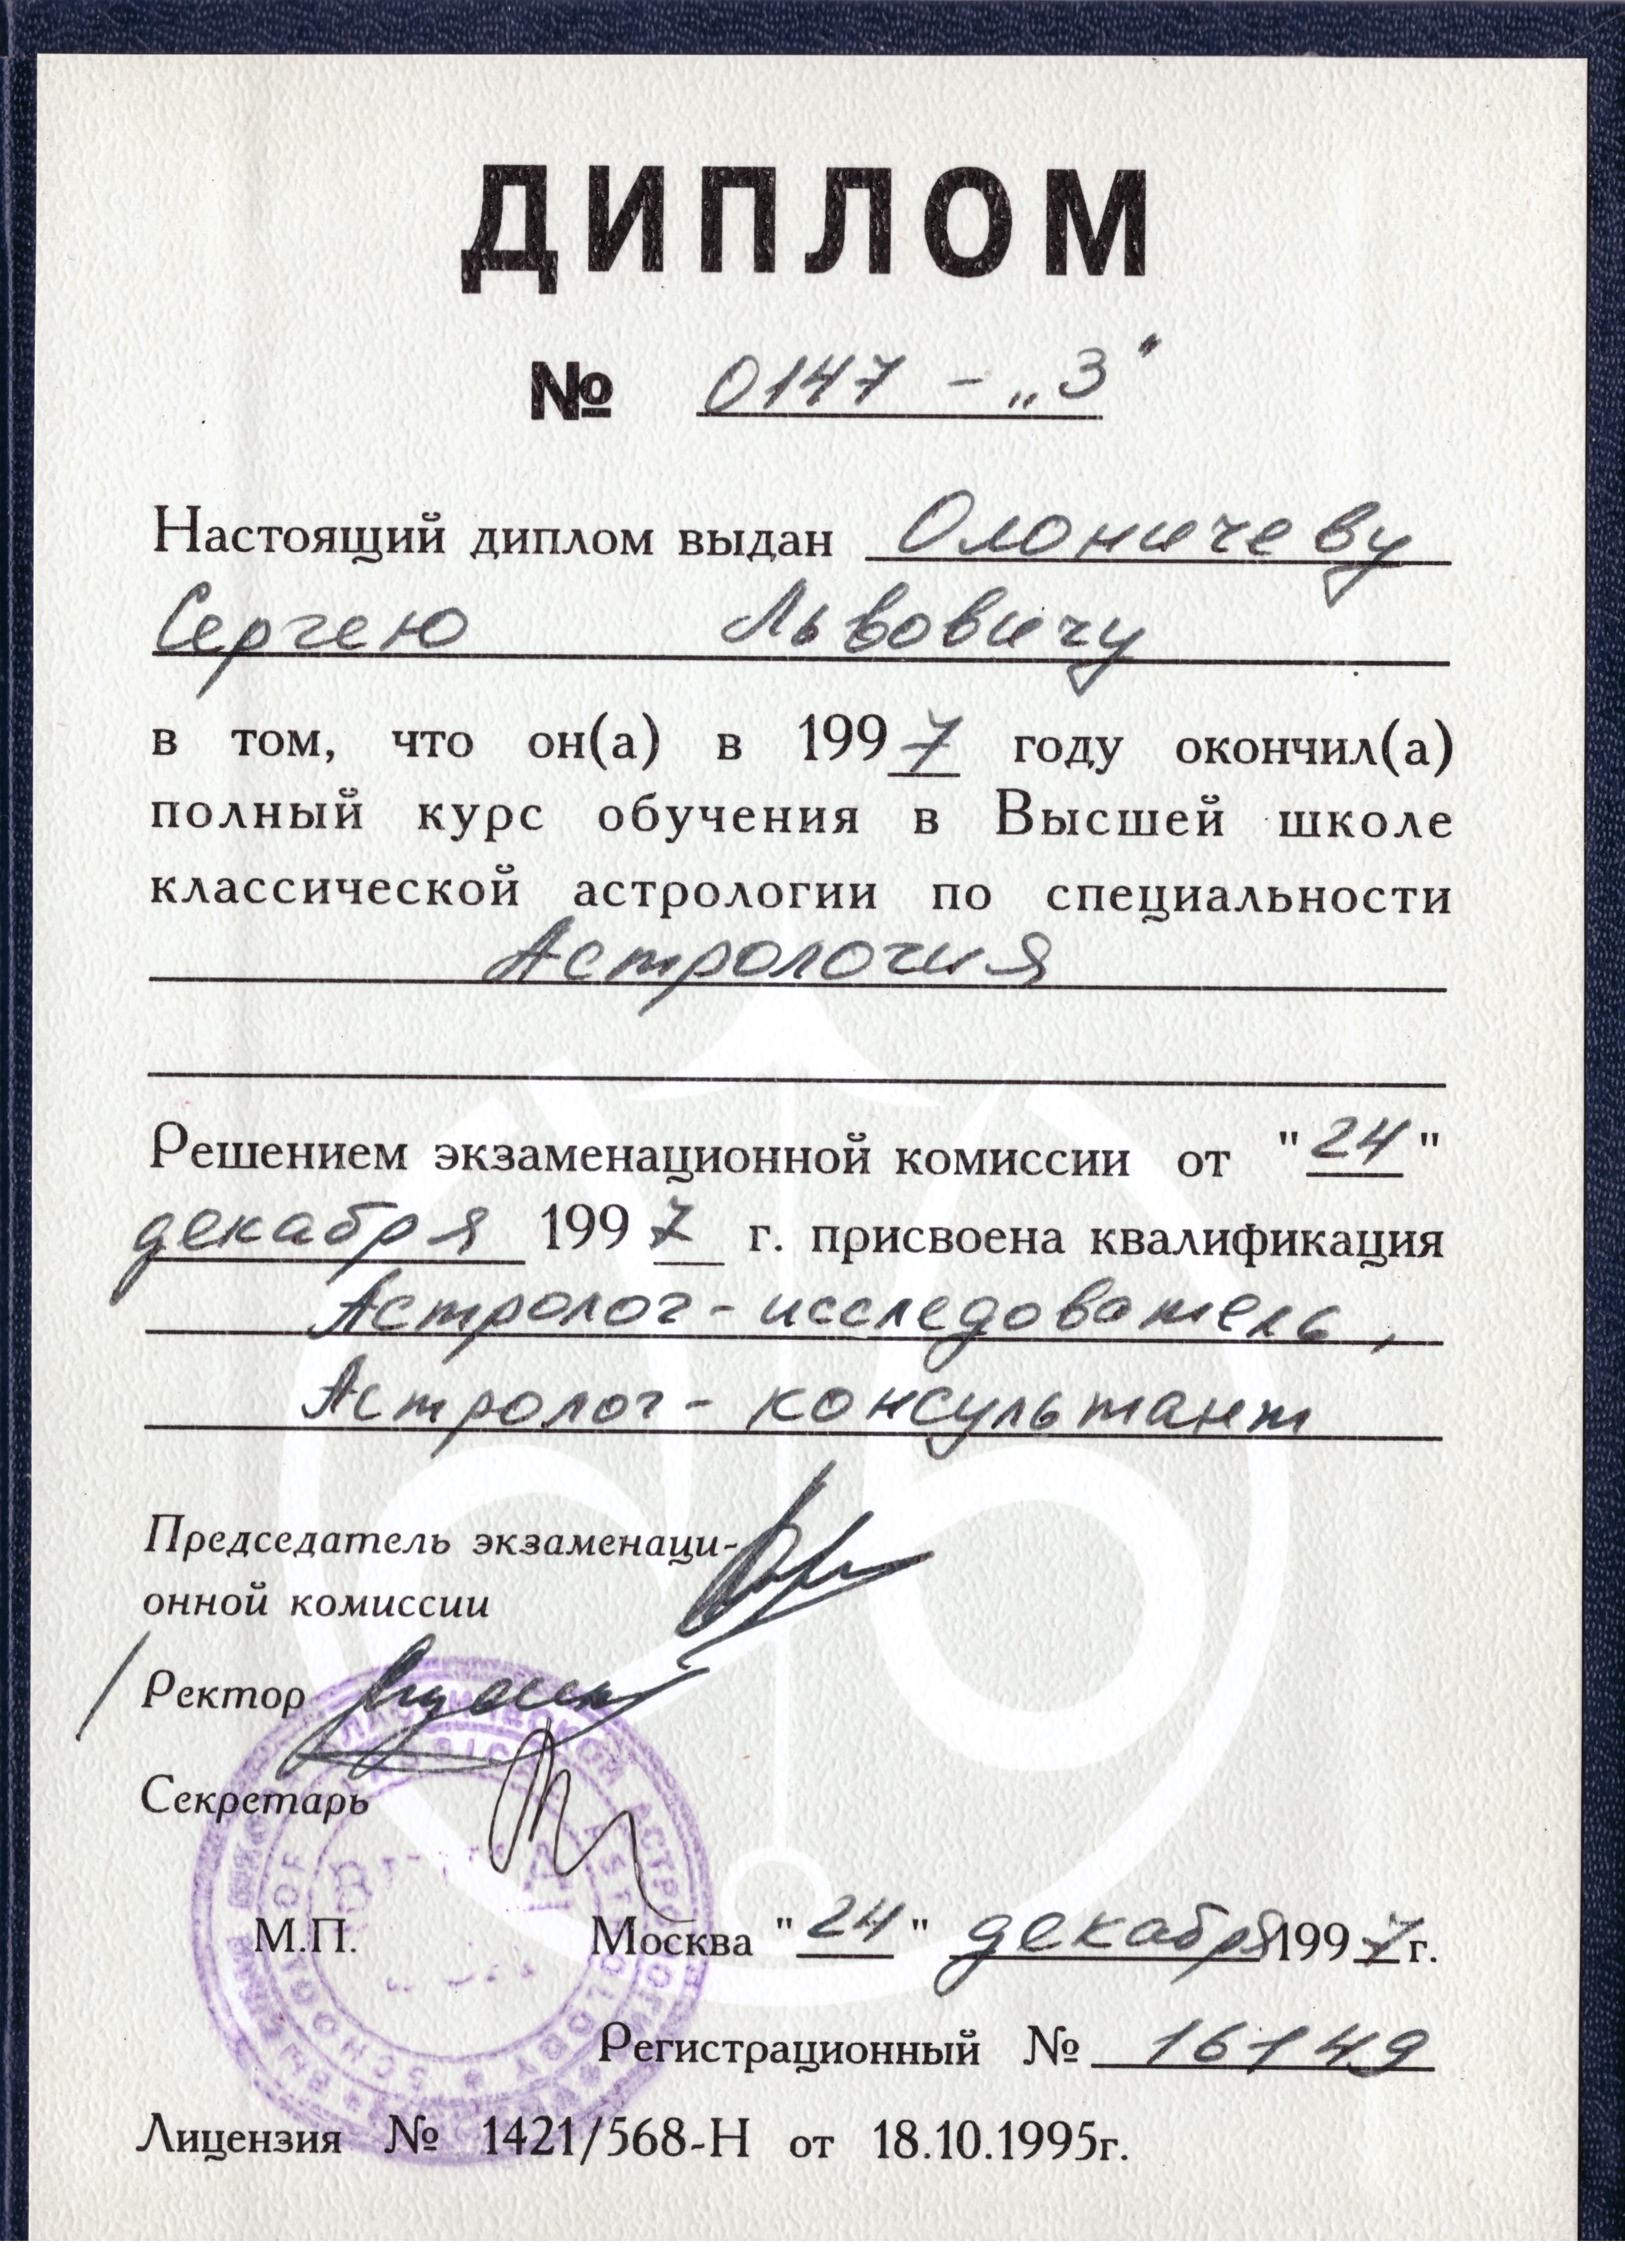 ДИПЛОМ
№ 0147 - „З"
Настоящий диплом выдан Олоничеву
Сергею Львовичу
в том, что он(а) в 1997 году окончил(а)
полный курс обучения в Высшей школе
классической астрологии по специальности
Астрология
Решением экзаменационной комиссии от "24"
декабря 1997 г. присвоена квалификация
Астролог-исследователь,
Астролог-консультант
Председатель экзаменаци-
онной комиссии
Ректор
Секретарь
М.П. Москва "24" декабря 1997г.
Регистрационный № 16149
Лицензия № 1421/568-Н от 18.10.1995г.
SCHOOL OF ASTROLOGY